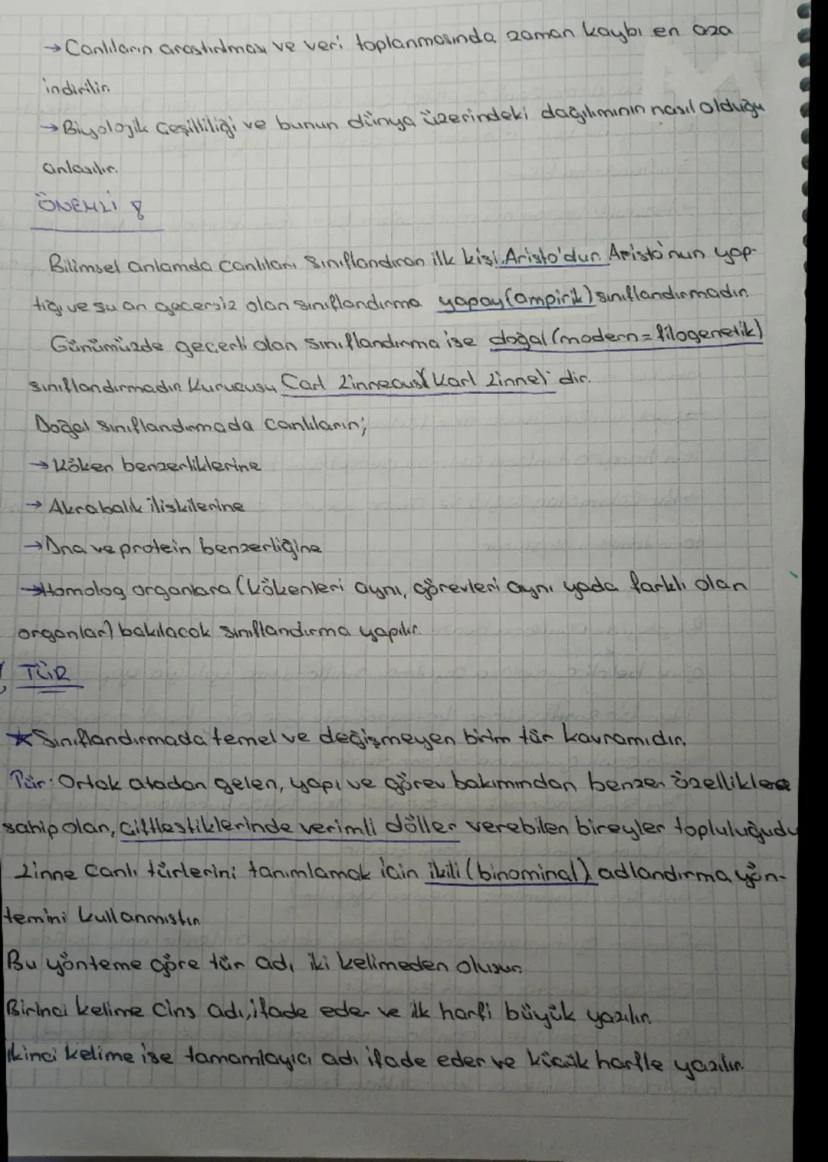 → Canlıların araştırılması ve veri toplanmasında zaman kaybı en aza
indirilir.
→ Biyolojik çeşitliliği ve bunun dünya üzerindeki dağılımının nasıl olduğu
anlaşılır.
ÖNEMLİ 8
Bilimsel anlamda canlıları sınıflandıran ilk kişi Aristo'dur. Aristo'nun yap-
tığı ve şu an geçersiz olan sınıflandırma yapay (ampirik) sınıflandırmadır.
Günümüzde geçerli olan sınıflandırma ise doğal (modern = filogenetik)
sınıflandırmadır. Kurucusu Carl Linneaus (Karl Linne) dir.
Doğal sınıflandırmada canlıların;
→ Köken benzerliklerine
→ Akrabalık ilişkilerine
→ Dna ve protein benzerliğine
→ Homolog organlara (kökenleri aynı, görevleri aynı yada farklı olan
organlar) bakılacok sınıflandırma yapılır.
TÜR
★ Sınıflandırmada temel ve değişmeyen birim tür kavramıdır.
Tür: Ortak atadan gelen, yapı ve görev bakımından benzer özelliklere
sahip olan, çiftleştiklerinde verimli döller verebilen bireyler topluluğudu
Linne canlı türlerini tanımlamak için ikili (binominal) adlandırma yön-
temini kullanmıştır.
Bu yönteme göre tür adı iki kelimeden oluşur.
Birinci kelime cins adı, ifade eder ve ilk harfi büyük yazılır.
ikinci kelime ise tamamlayıcı adı ifade eder ve küçük harfle yazılır.